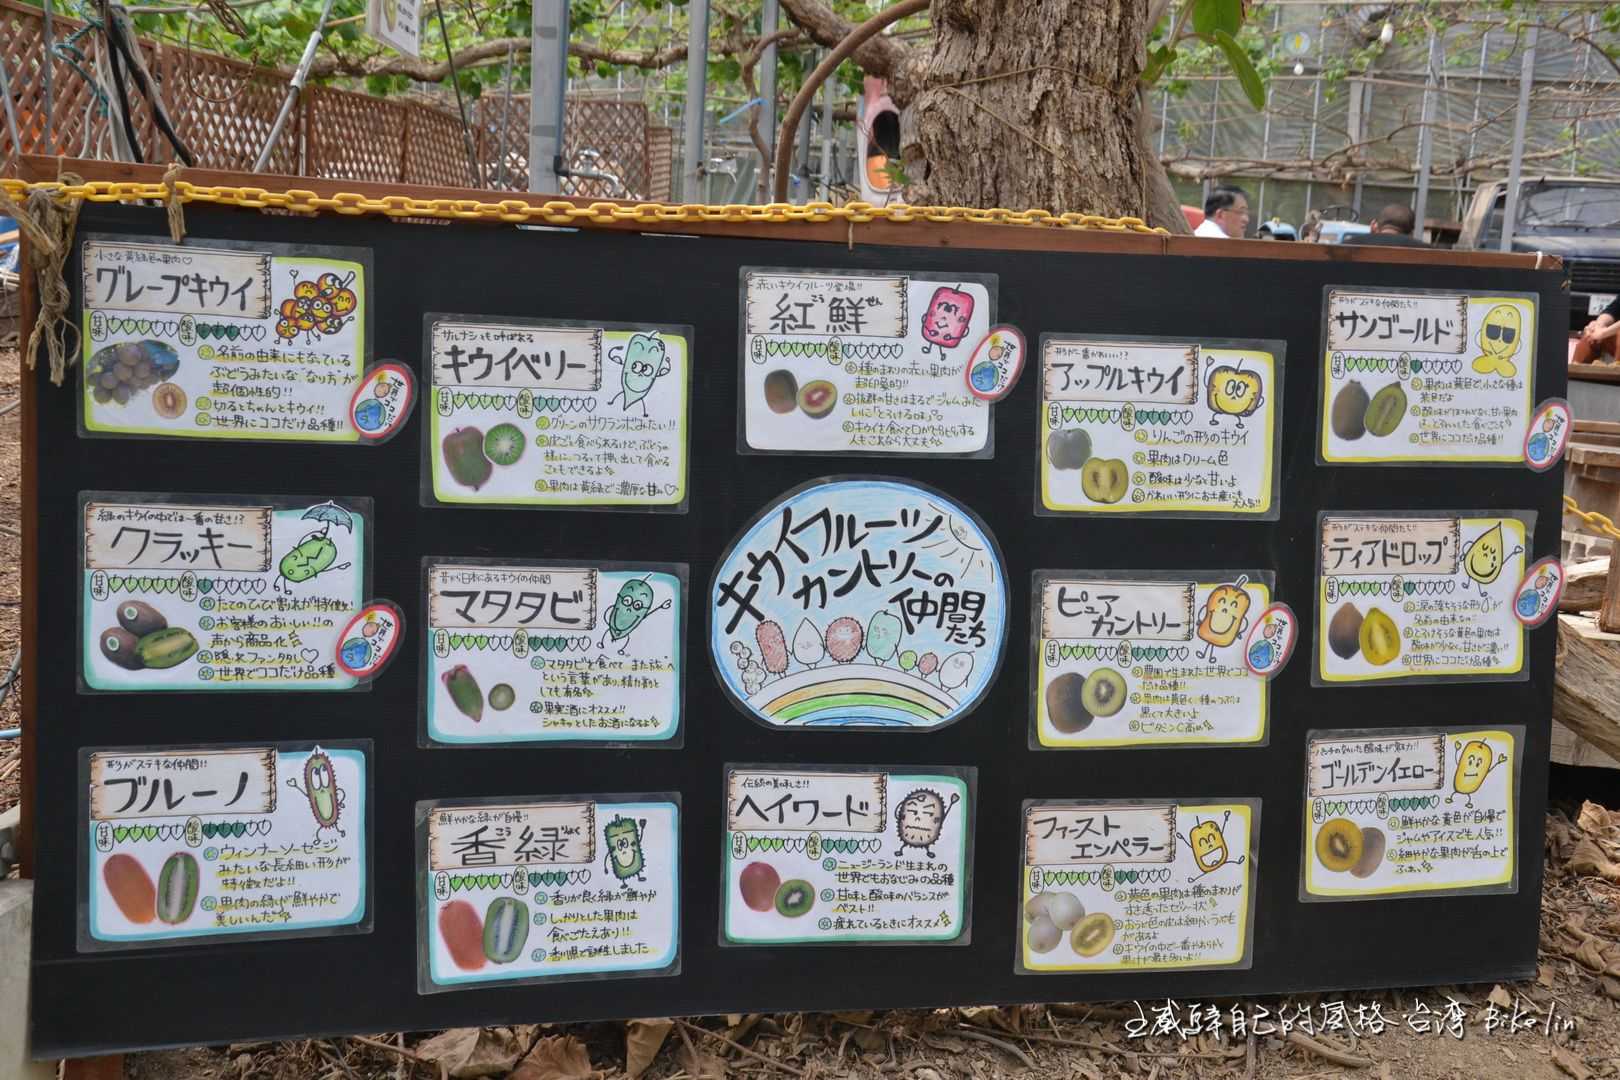 小さな黄緑色の果肉♡
グレープキウイ
甘味
酸味
名前の由来にもなっている
ぶどうみたいな"なり方"が
超個性的!!
切るとちゃんとキウイ!!
世界にココだけ品種!!
緑のキウイの中では一番の甘さ!?
クラッキー
甘味
酸味
たてのひび割れが特徴!
お客様のおいしい!!の
声から商品化
隠れファン多し♡
世界でココだけ品種
形がステキな仲間!!
ブルーノ
甘味
酸味
ウィンナーソーセージ
みたいな長細い形が
特徴だよ!!
果肉の緑が鮮やかで
美しいんだ
サルナシとも呼ばれる
キウイベリー
甘味
酸味
グリーンのサクランボみたい!!
皮ごと食べられるけど、ぶどうの
様に、つるって押し出して食べる
こともできるよ
果肉は黄緑で濃厚な甘み♡
昔から日本にあるキウイの仲間
マタタビ
甘味
酸味
マタタビを食べて"また旅"へ
という言葉があり、精力剤と
しても有名
果実酒にオススメ!!
シャキッとしたお酒になるよ
鮮やかな緑が自慢!!
香緑
こう
りょく
甘味
酸味
香りが良く緑が鮮やか
しっかりとした果肉は
食べごたえあり!!
香川県で誕生しました
赤いキウイフルーツ登場!!
紅鮮
こう
せん
甘味
酸味
種のまわりの赤い果肉が
超印象的!!
抜群の甘さはまるでジャムみた
いに"とろける味"♡
キウイを食べて口がピリピリする
人もこれなら大丈夫
キウイフルーツ
カントリーの
仲間たち
伝統の美味しさ!!
ヘイワード
甘味
酸味
ニュージーランド生まれの
世界でもおなじみの品種
甘味と酸味のバランスが
ベスト!!
疲れているときにオススメ
形が一番かわいい!?
アップルキウイ
甘味
酸味
りんごの形のキウイ
果肉はクリーム色
酸味は少なく甘いよ
かわいい形にお土産にも
大人気!!
ピュア
カントリー
甘味
酸味
農園で生まれた世界でココ
だけ品種!!
果肉は黄色く、種のつぶは
黒くて大きいよ
ビタミンC高め
ファースト
エンペラー
甘味
酸味
黄色の果肉は種のまわりが
すき透ったゼリー状
おうど色の皮は細かいうぶ毛
があるよ
キウイの中で一番やわらかく
果汁が最も多いよ!!
形がステキな仲間たち!!
サンゴールド
甘味
酸味
果肉は黄色で、小さな種は
茶色だよ
酸味がほとんどなく、甘い果肉
世界にココだけ品種!!
形がステキな仲間たち!!
ティアドロップ
甘味
酸味
涙の落ちそうな形が
名前の由来なの
とろけそうな黄色の果肉は
酸味が少なく、甘さがこ濃い!!
世界にココだけ品種
パンチのきいた酸味が魅力!!
ゴールデンイエロー
甘味
酸味
鮮やかな黄色が自慢で
ジャムやアイスでも人気!!
細やかな果肉が舌の上で
世界でココだけ
世界でココだけ
世界でココだけ
世界でココだけ
世界でココだけ
世界でココだけ
自己的風格 台湾 Bike lin